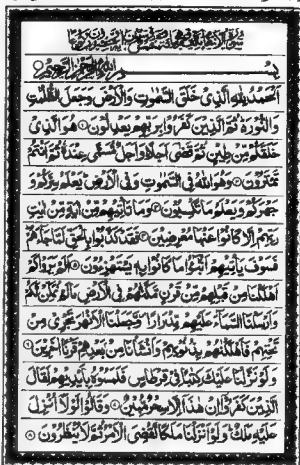 بسم الله الرحمن الرحيم
الحمد لله الذي خلق السموت والارض وجعل الظلمت
والنور ثم الذين كفروا بربهم يعدلون ۝ هو الذي
خلقكم من طين ثم قضى اجلا واجل مسمى عنده ثم انتم
تمترون ۝ وهو الله في السموت وفي الارض يعلم سركم و
جهركم ويعلم ما تكسبون ۝ وما تاتيهم من اية من ايت
ربهم الا كانوا عنها معرضين ۝ فقد كذبوا بالحق لما جاءهم
فسوف ياتيهم انبؤا ما كانوا به يستهزءون ۝ الم يروا كم
اهلكنا من قبلهم من قرن مكنهم في الارض ما لم نمكن لكم
وارسلنا السماء عليهم مدرارا وجعلنا الانهر تجري من
تحتهم فاهلكنهم بذنوبهم وانشانا من بعدهم قرنا اخرين ۝
ولو نزلنا عليك كتبا في قرطاس فلمسوه بايديهم لقال
الذين كفروا ان هذا الا سحر مبين ۝ وقالوا لولا انزل
عليه ملك ولو انزلنا ملكا لقضي الامر ثم لا ينظرون ۝